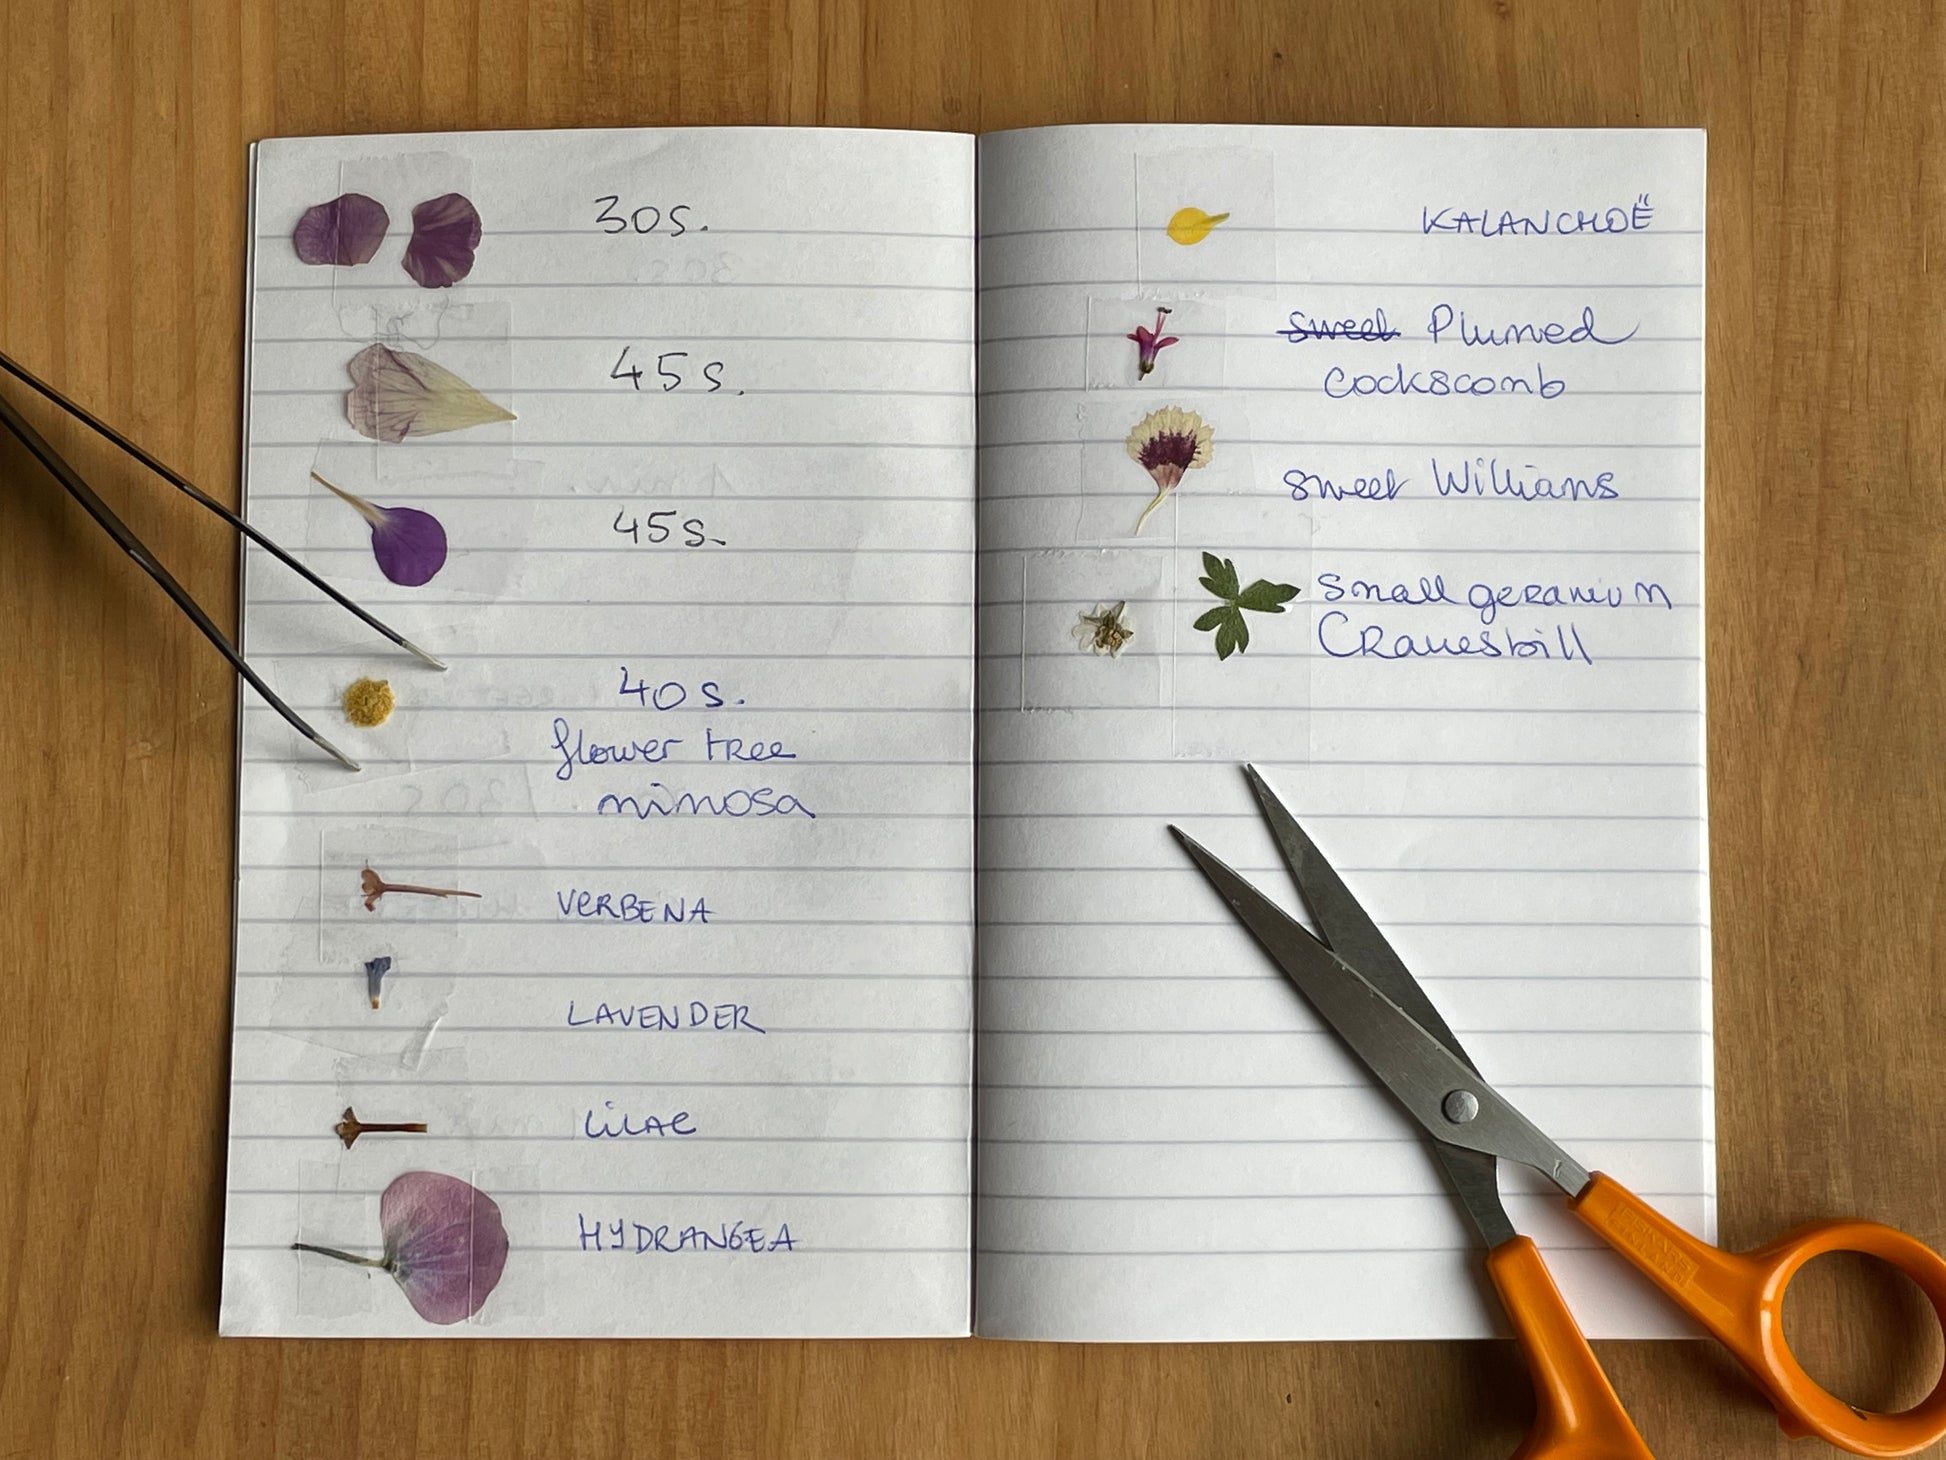 30s.
45s.
45s.
40s.
flower tree
mimosa
VERBENA
LAVENDER
LILAC
HYDRANGEA
KALANCHOË
sweet Plumed
Cockscomb
sweet Willians
small geranium
Cranesbill
FISKARS